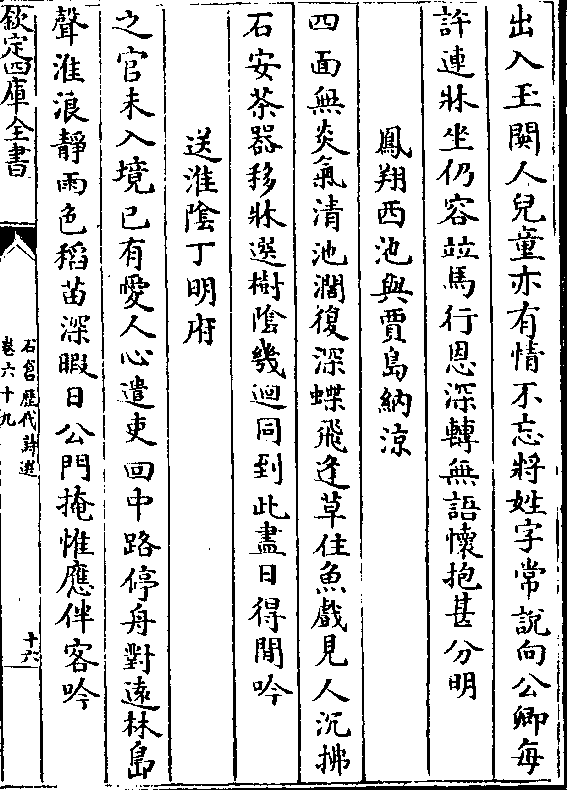 出入玉闕人兒童亦有情不忘將姓字常說向公卿每
許連牀坐仍容竝馬行恩深轉無語懷抱甚分明
鳳翔西池與賈島納涼
四面無炎氣清池濶復深蝶飛逢草住魚戲見人沉拂
石安茶器移牀選樹陰幾迴同到此盡日得閒吟
送淮陰丁明府
之官未入境已有愛人心遣吏回中路停舟對遠林島
聲淮浪靜雨色稻苗深暇日公門掩惟應伴客吟
欽定四庫全書
石倉歷代詩選
卷六十九
十六